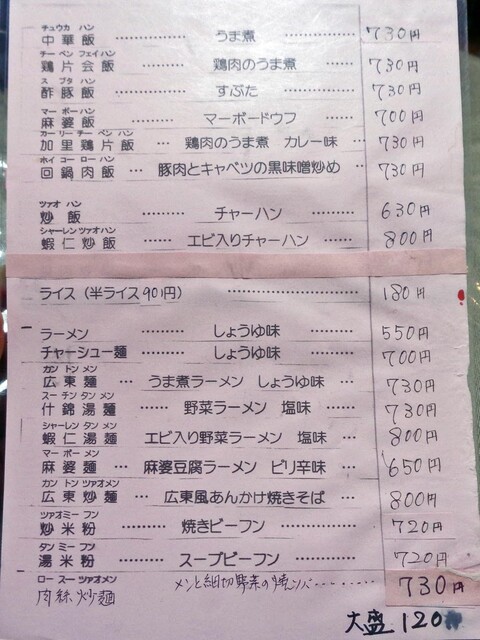 チュウカ ハン
中華飯 ……… うま煮 730円
チー ペン フェイ ハン
鶏片会飯 ……… 鶏肉のうま煮 730円
ス ブタ ハン
酢豚飯 ……… すぶた 730円
マー ボー ハン
麻婆飯 ……… マーボードウフ 700円
カーリー チー ペン ハン
加里鶏片飯 … 鶏肉のうま煮 カレー味 … 730円
ホイ コー ロー ハン
回鍋肉飯 … 豚肉とキャベツの黒味噌炒め … 730円
ツァオ ハン
炒飯 ……… チャーハン 630円
シャーレン ツァオ ハン
蝦仁炒飯 ……… エビ入りチャーハン 800円
ライス (半ライス90円) ……………… 180円
ラーメン ……… しょうゆ味 550円
チャーシュー麺 ……… しょうゆ味 700円
カン トン メン
広東麺 … うま煮ラーメン しょうゆ味 … 730円
スー チン タン メン
什錦湯麺 …… 野菜ラーメン 塩味 … 730円
シャーレン タン メン
蝦仁湯麺 エビ入り野菜ラーメン 塩味 … 800円
マー ボー メン
麻婆麺 … 麻婆豆腐ラーメン ピリ辛味 … 650円
カン トン ツァオメン
広東炒麺 … 広東風あんかけ焼きそば … 800円
ツァオミー フン
炒米粉 …… 焼きビーフン 720円
タン ミー フン
湯米粉 …… スープビーフン 720円
ロー スー ツァオメン
肉絲炒麺 メンと細切野菜の焼ソバ…… 730円
大盛 120円